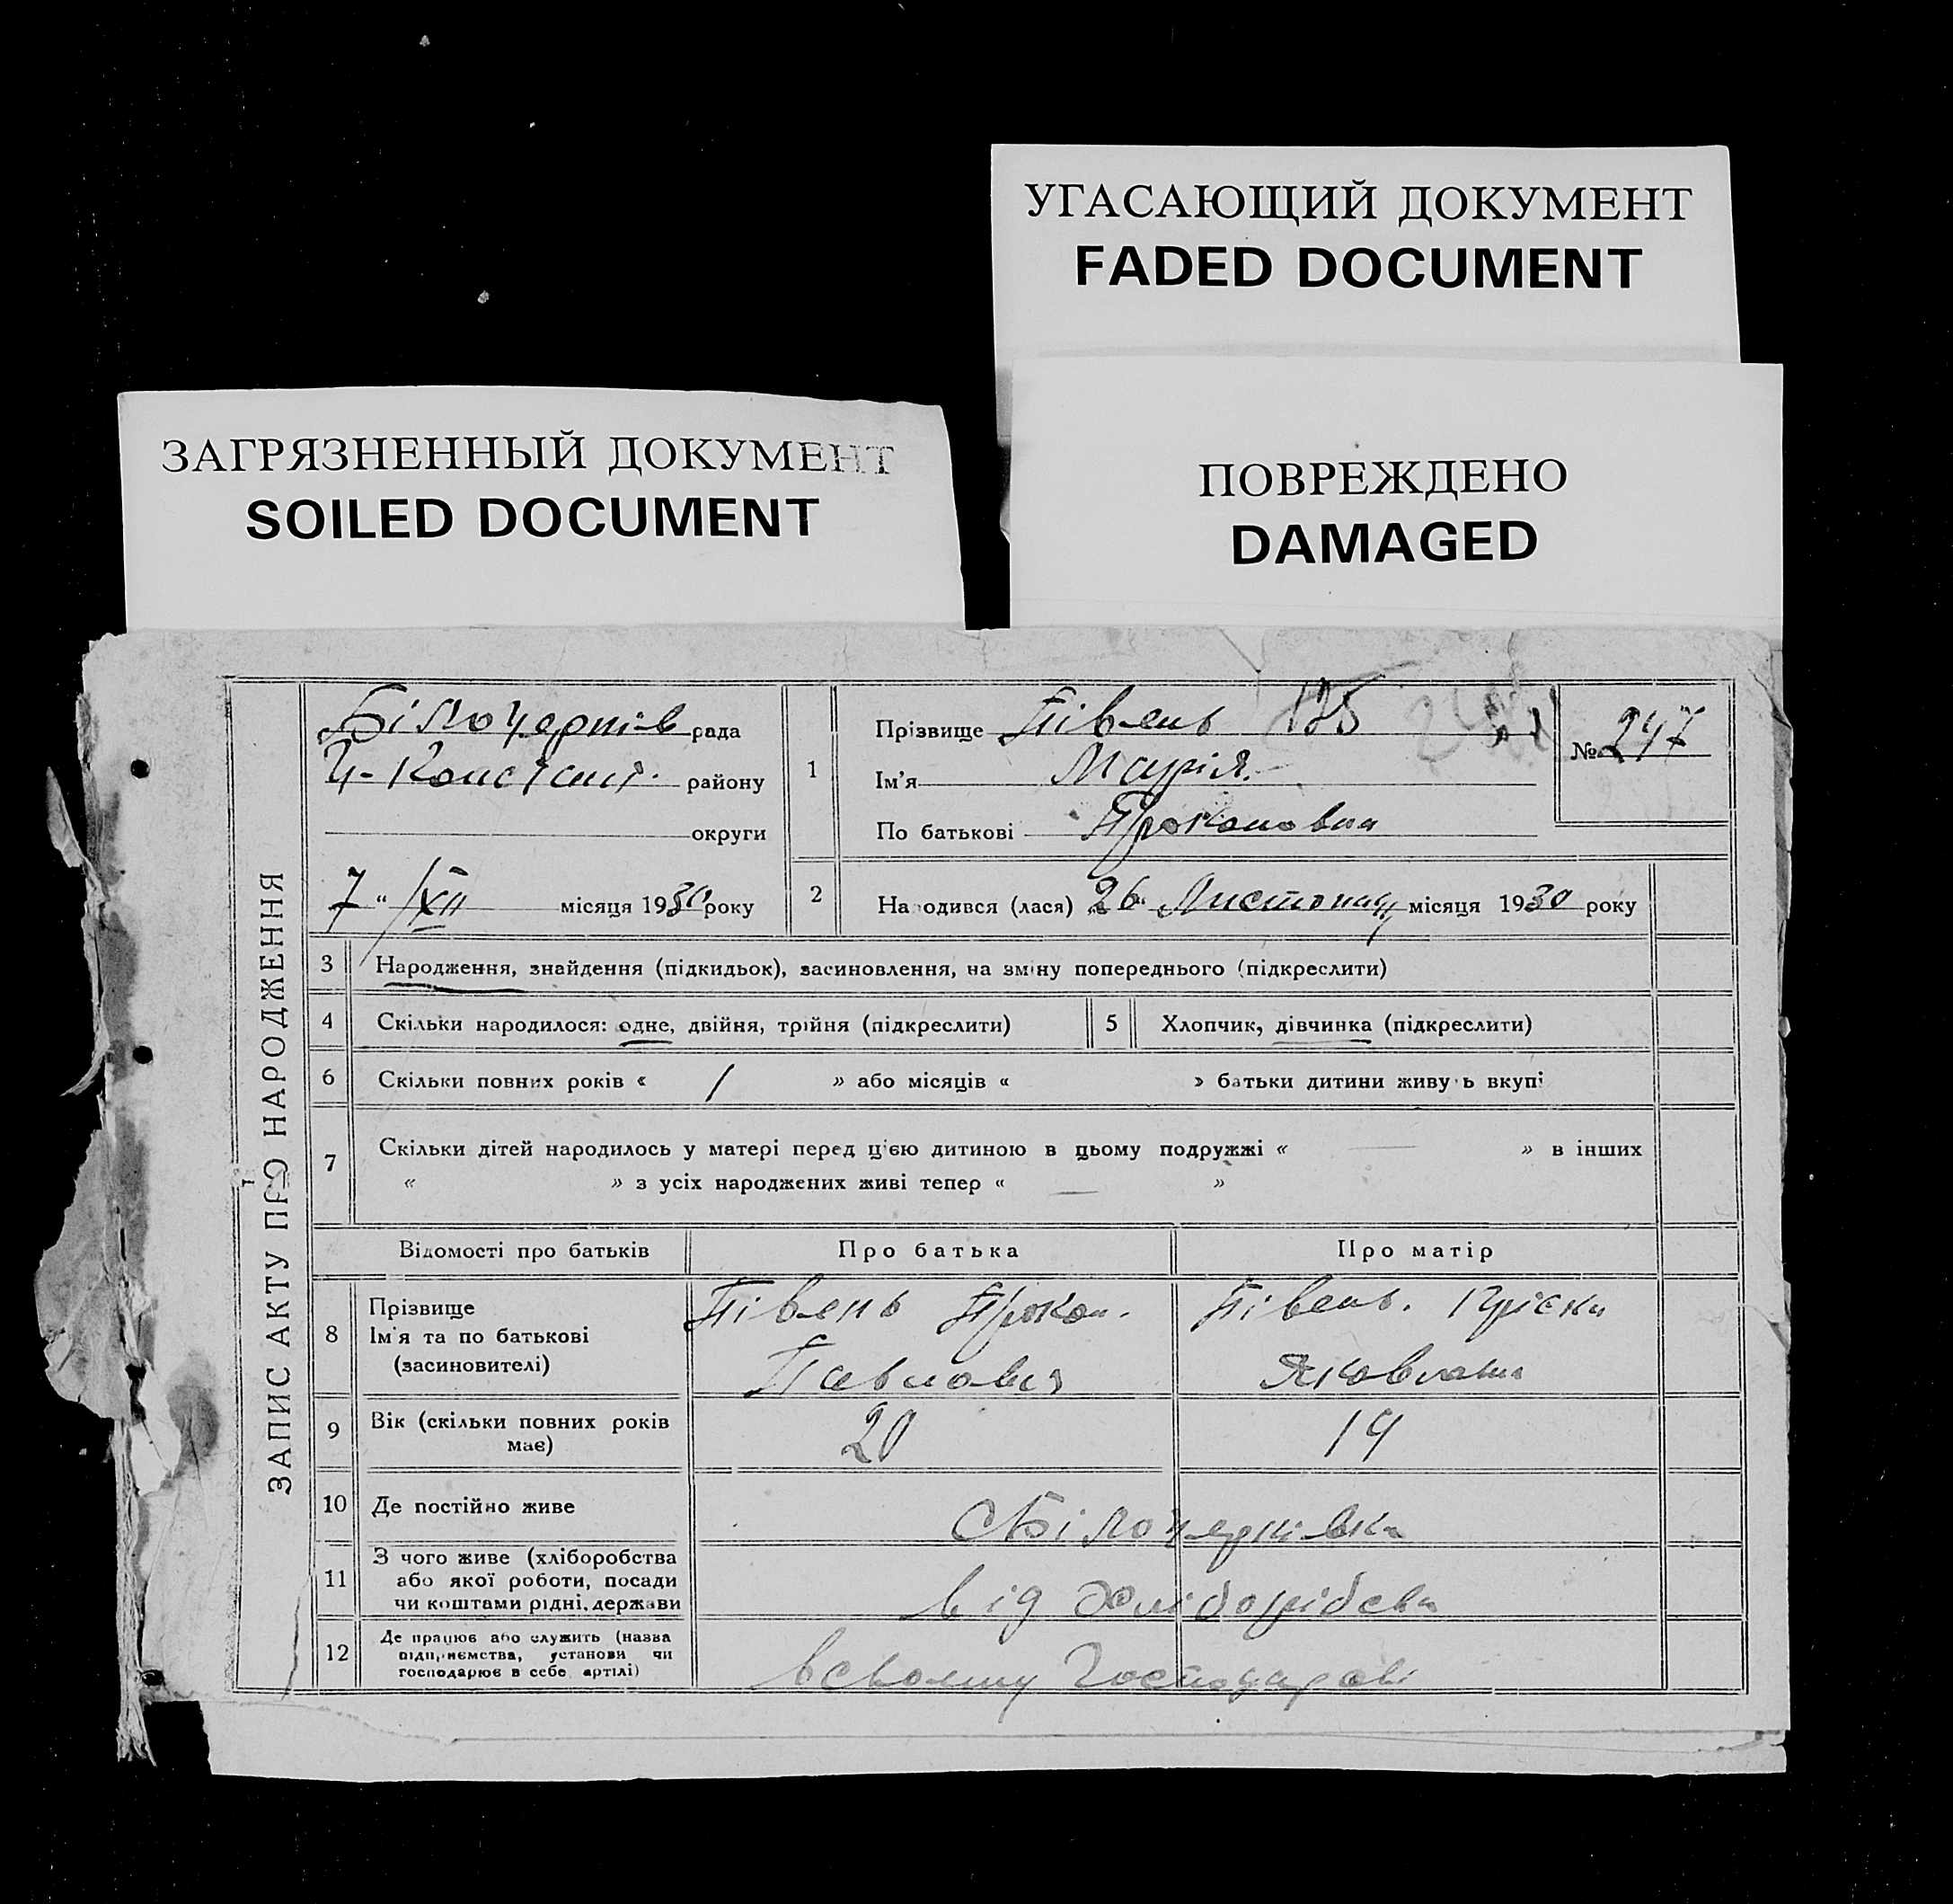 УГАСАЮЩИЙ ДОКУМЕНТ
FADED DOCUMENT
ЗАГРЯЗНЕННЫЙ ДОКУМЕНТ
SOILED DOCUMENT
ПОВРЕЖДЕНО
DAMAGED
ЗАПИС АКТУ ПРО НАРОДЖЕННЯ
рада
району
округи
7 " XII місяця 1930 року
1
Прізвище Півень 125
Ім'я Марія
По батькові Прокоповна
№ 247
2 Народився (лася) 26 Листопад місяця 1930 року
3 Народження, знайдення (підкидьок), засиновлення, на зміну попереднього (підкреслити)
4 Скільки народилося: одне, двійня, трійня (підкреслити)
5 Хлопчик, дівчинка (підкреслити)
6 Скільки повних років « 1 » або місяців « » батьки дитини живуть вкупі
7 Скільки дітей народилось у матері перед цією дитиною в цьому подружжі « — » в інших
« » з усіх народжених живі тепер « — »
Відомості про батьків Про батька Про матір
8 Прізвище
Ім'я та по батькові
(засиновителі)
Півень Прокоп
Павлович
Півень
Яковлевна
9 Вік (скільки повних років
має)
20 19
10 Де постійно живе
11 З чого живе (хліборобства
або якої роботи, посади
чи коштами рідні, держави
від
12 Де працює або служить (назва
підприємства, установи чи
господарює в себе, артілі)
в своєму